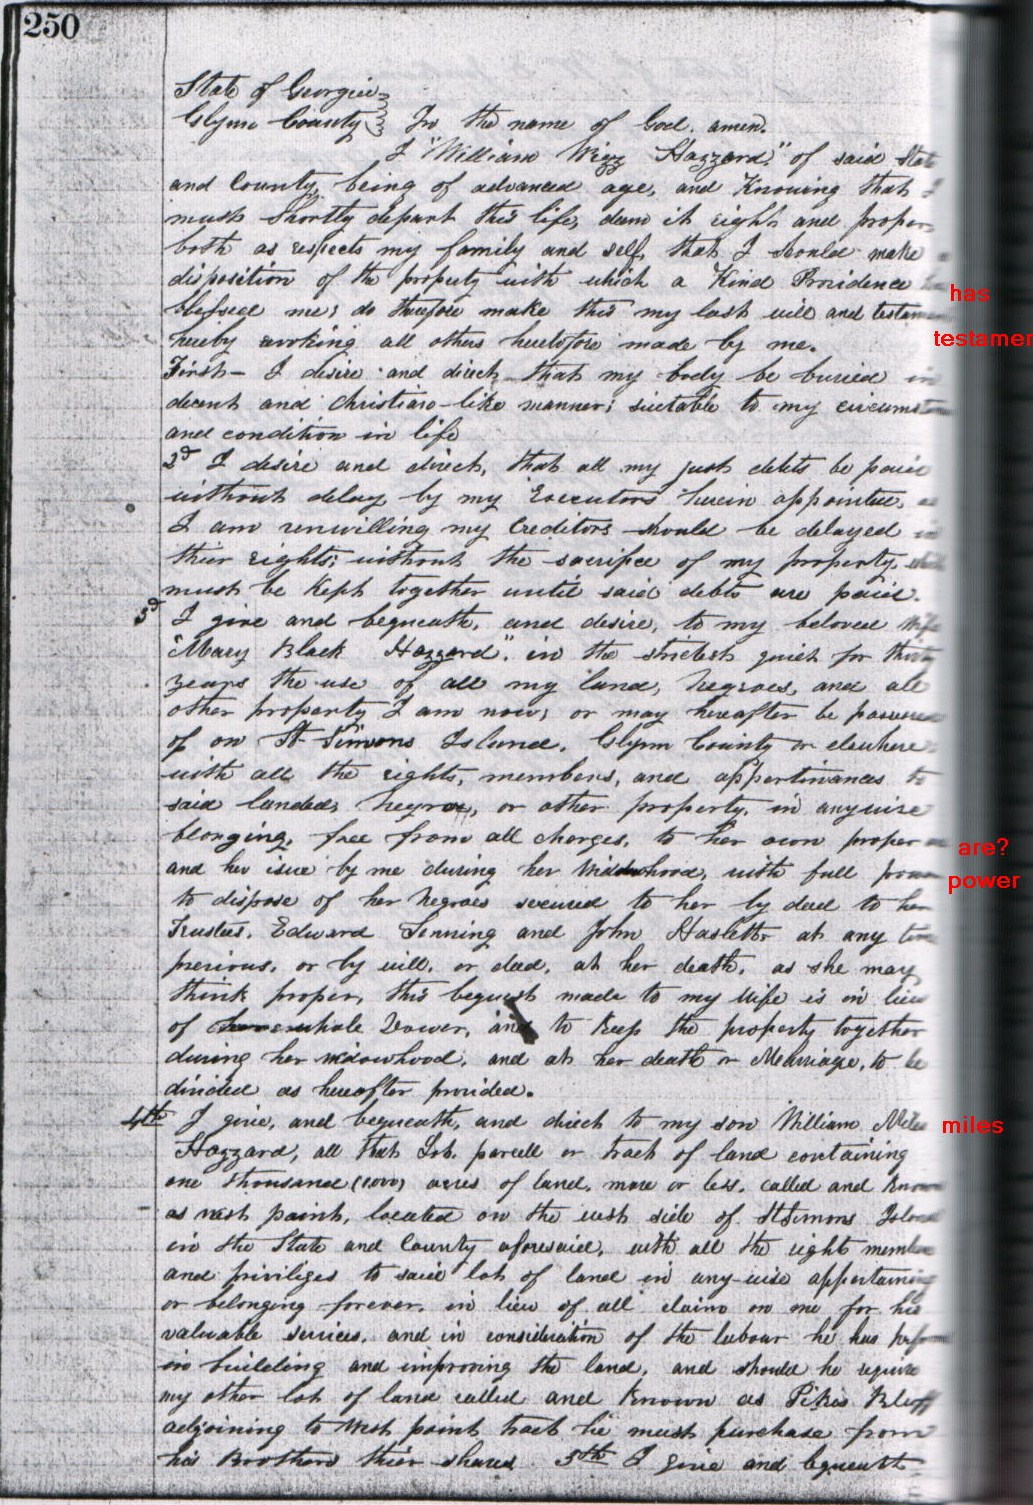 250
State of Georgia
Glynn County } In the name of God. amen.
I "William Wigg Hazzard," of said State
and County, being of advanced age, and Knowing that I
must shortly depart this life, deem it right and proper
both as respects my family and self, that I should make a
disposition of the property with which a Kind Providence has
blessed me; do therefore make this my last will and testament
hereby revoking all others heretofore made by me.
First — I desire and direct that my body be buried in
decent and christian-like manner; suitable to my circumstan
and condition in life
2d I desire and direct, that all my just debts be paid
without delay by my Executors herein appointed, as
I am unwilling my Creditors should be delayed in
thier rights; without the sacrifice of my property which
must be Kept together until said debts are paid.
3d I give and bequeath, and desire, to my beloved Wife
"Mary Black Hazzard", in the strictest quiet for thirty
years the use of all my land, Negroes, and all
other property I am now, or may hereafter be possessed
of on St Simons Island, Glynn County or elsewhere
with all the rights, members, and appertinances to
said landed, Negroe, or other property, in anywise
belonging, free from all charges, to her own proper
and her issue by me during her Widowhood, with full power
to dispose of her Negroes secured to her by deed to her
Trustees, Edward and John at any time
previous, or by will, or deed, at her death, as she may
think proper, this bequest made to my Wife is in lieu
of whole Dower, and to Keep the property together
during her widowhood, and at her death or Marriage, to be
divided as hereafter provided.
4th I give, and bequeath, and direct to my son William Miles
Hazzard, all that Lot, parcell or tract of land containing
one thousand (1000) acres of land, more or less, called and Known
as West point, located on the west side of St Simons Island
in the State and County aforesaid, with all the right members
and privileges to said lot of land in any-wise appertaining
or belonging forever, in lieu of all claims on me for his
valuable services, and in consideration of the labour he has
in building and improving the land, and should he require
my other lot of land called and Known as Pikes Bluff
adjoining to West point tract he must purchase from
his Brothers thier shares. 5th I give and bequeath
has
testamen
are?
power
miles